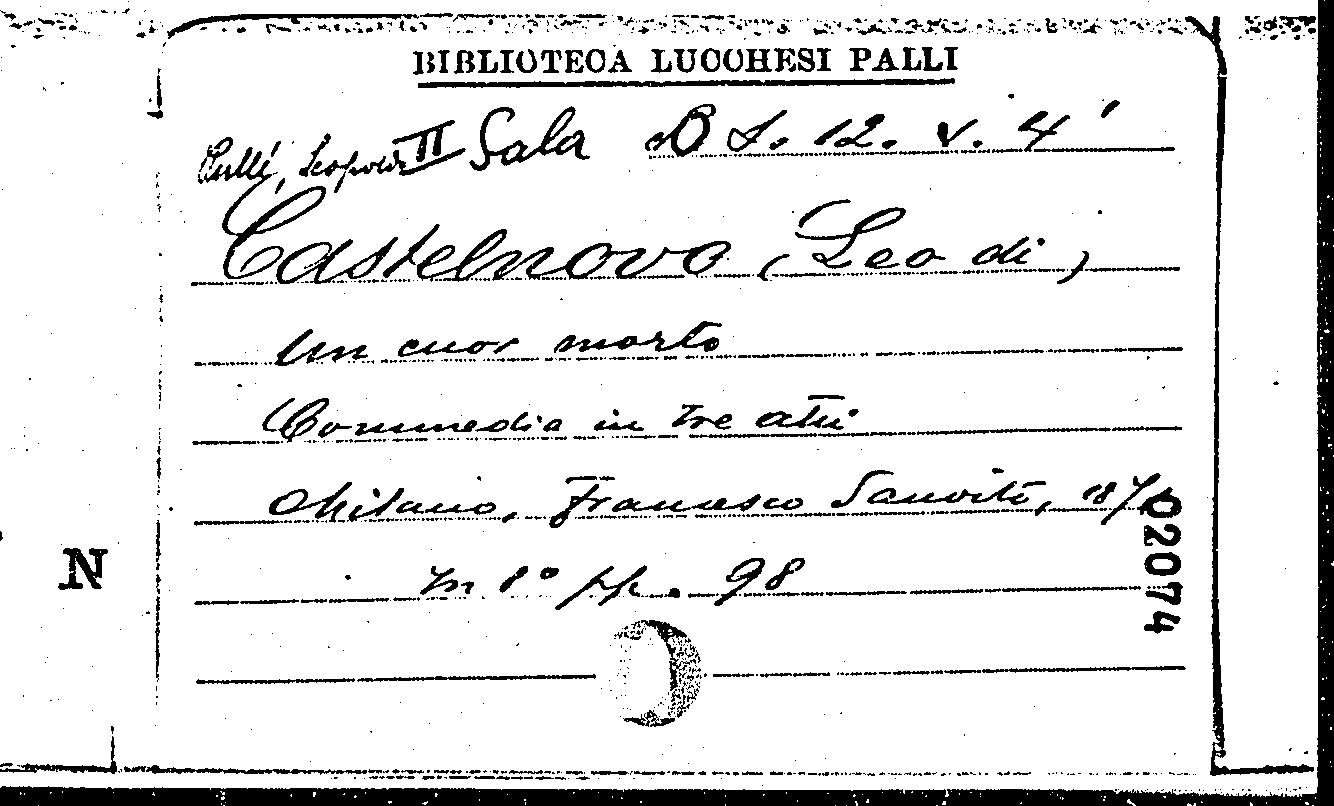 BIBLIOTECA LUCCHESI PALLI
Pullè, Leopoldo II Sala B S. 12. V. 4
Castelnovo (Leo di)
Un cuor morto
Commedia in tre atti
Milano, Francesco Sanvito,
02074
N
In 8° pp. 98